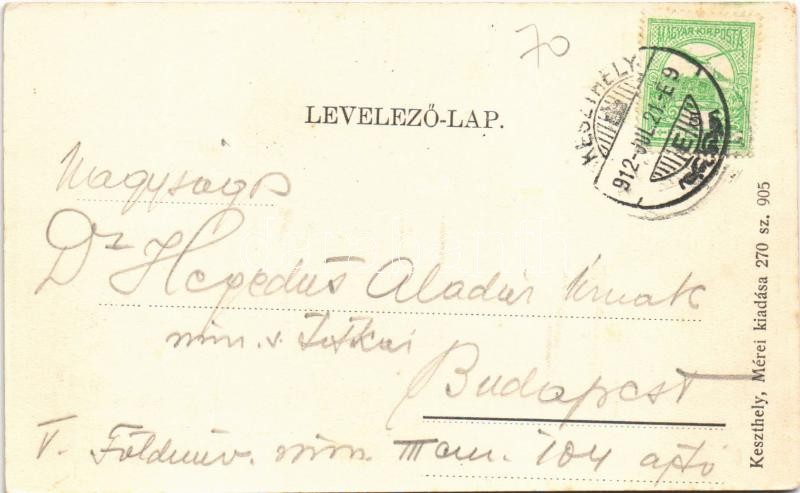 70
MAGYAR KIR. POSTA
KESZTHELY
912 JUL. 21. E 9
E
LEVELEZŐ-LAP.
Nagysága
Dr Hegedűs Aladár Urnak
min. s. titkár
Budapest
V. Földmüv. min. III em. 104 ajtó
Keszthely, Mérei kiadása 270 sz. 905